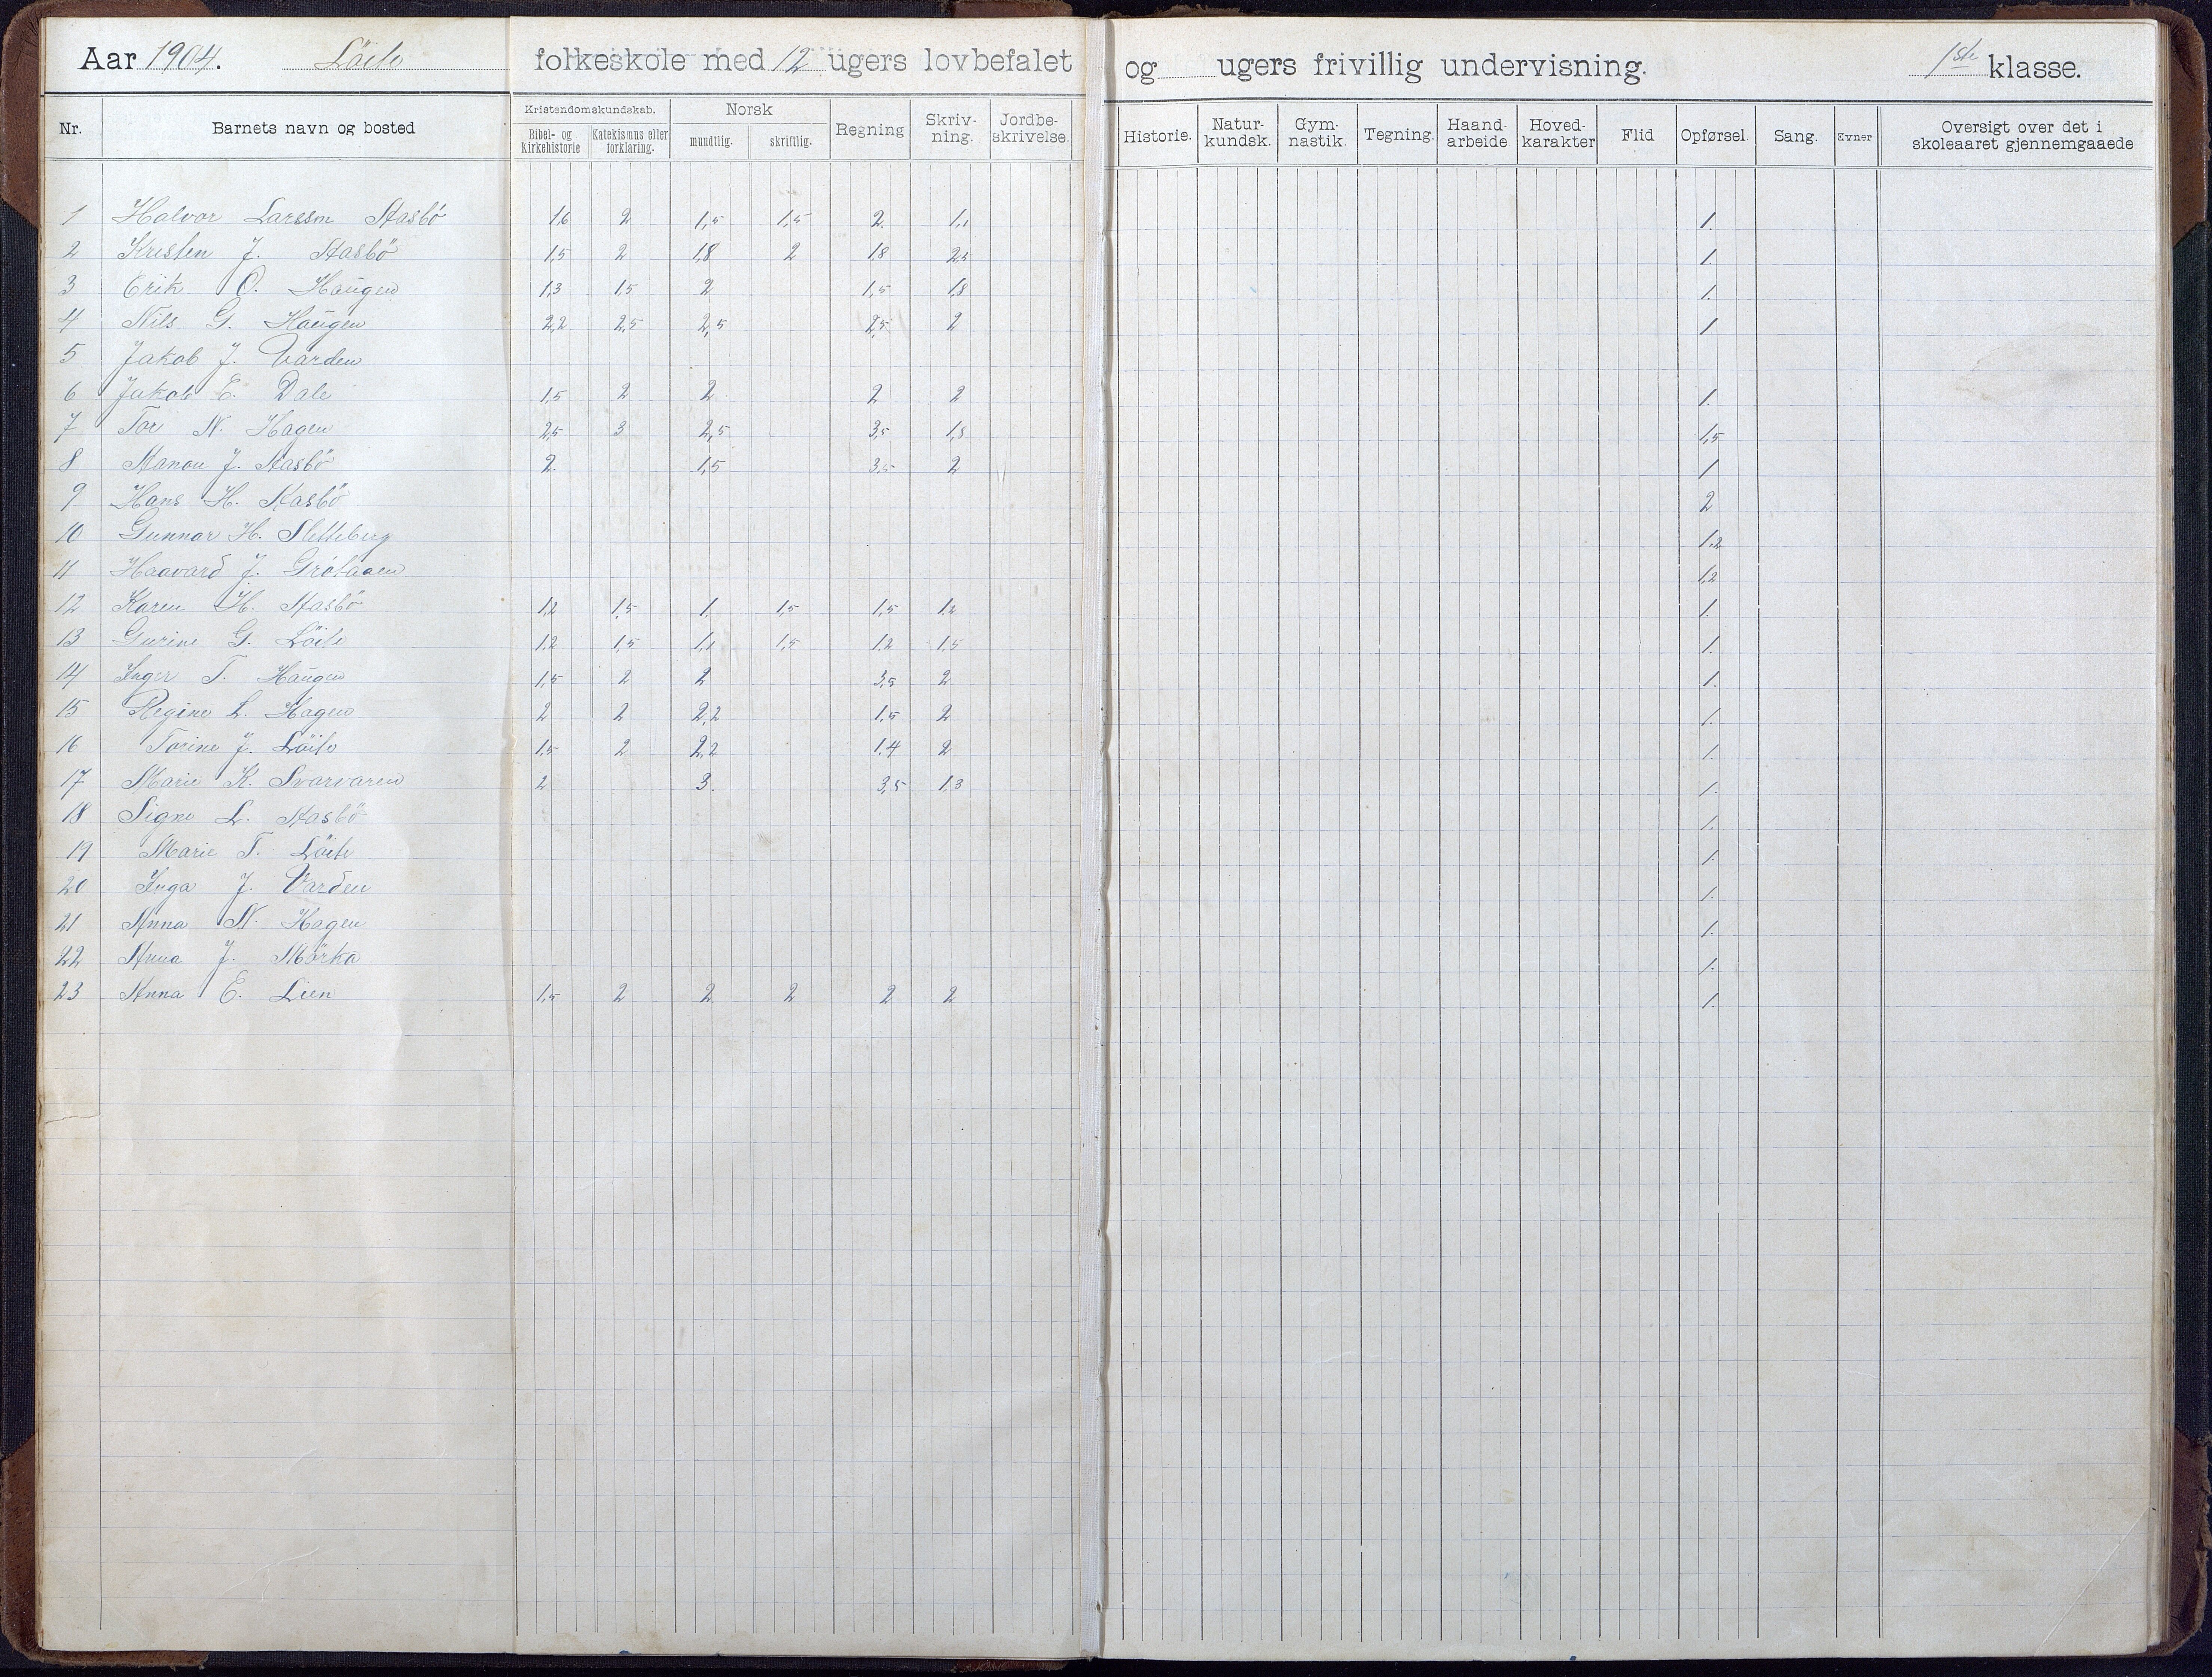 Aar 1904. Löite folkeskole med 12 ugers lovbefalet og ugers frivillig undervisning. 1ste klasse.
Nr. Barnets navn og bosted Kristendomskundskab. Bibel- og kirkehistorie Katekismus eller forklaring. Norsk mundtlig. skriftlig. Regning Skriv-ning. Jordbe-skrivelse. Historie. Natur-kundsk. Gym-nastik. Tegning. Haand-arbeide Hoved-karakter Flid Opførsel. Sang. Evner Oversigt over det i skoleaaret gjennemgaaede
1 Halvor Larssen Stasbö 1,6 2 1,5 1,5 2. 1,1 1.
2 Kristen J. Stasbö 1,5 2 1,8 2 1,8 2,5 1.
3 Erik O. Haugen 1,3 1,5 2 1,5 1,8 1.
4 Nils G. Haugen 2,2 2,5 2,5 2,5 2 1
5 Jakob J. Varden
6 Jakob E. Dale 1,5 2 2 2 2 1.
7 Tor N. Hagen 2,5 3 2,5 3,5 1,8 1,5
8 J. Stasbö 2. 1,5 3,5 2 1
9 Hans H. Stasbö 2
10 Gunnar H. Sletteberg 1,2
11 Haavard J. Grötaaen 1,2
12 Karen H. Stasbö 1,2 1,5 1. 1,5 1,5 1,2 1.
13 Gurine G. Löite 1,2 1,5 1,1 1,5 1,2 1,5 1.
14 Inger T. Haugen 1,5 2 2 3,5 2 1.
15 Regine L. Hagen 2 2 2,2 1,5 2 1.
16 Torine J. Löite 1,5 2 2,2 1,4 2 1.
17 Marie K. Svarvaren 2 3. 3,5 1,3 1.
18 Signe L. Stasbö 1.
19 Marie T. Löite 1.
20 Inga J. Varden 1.
21 Anna N. Hagen 1.
22 Anna J. Mörka 1.
23 Anna E. Lien 1,5 2 2 2 2 2 1.